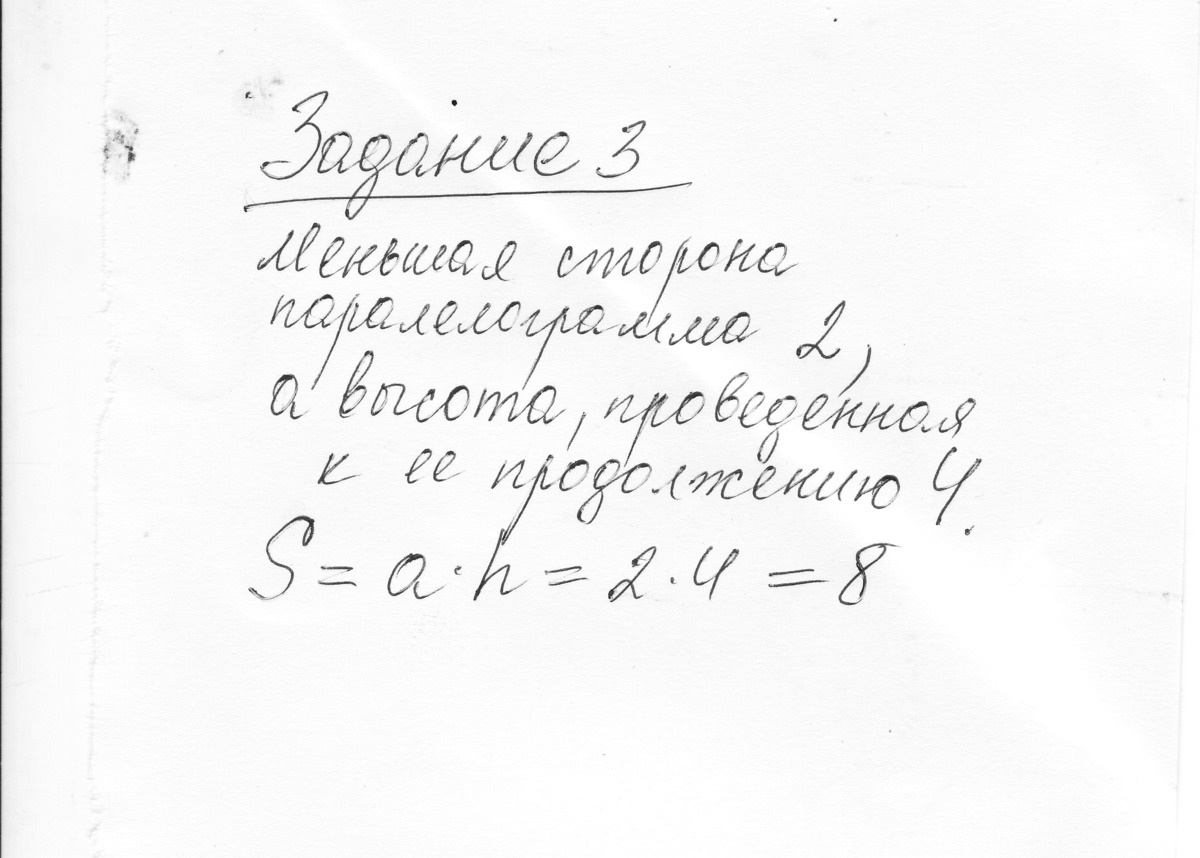 Задание 3
Меньшая сторона
паралелограмма 2,
а высота, проведенная
к ее продолжению 4.
S = a · h = 2 · 4 = 8